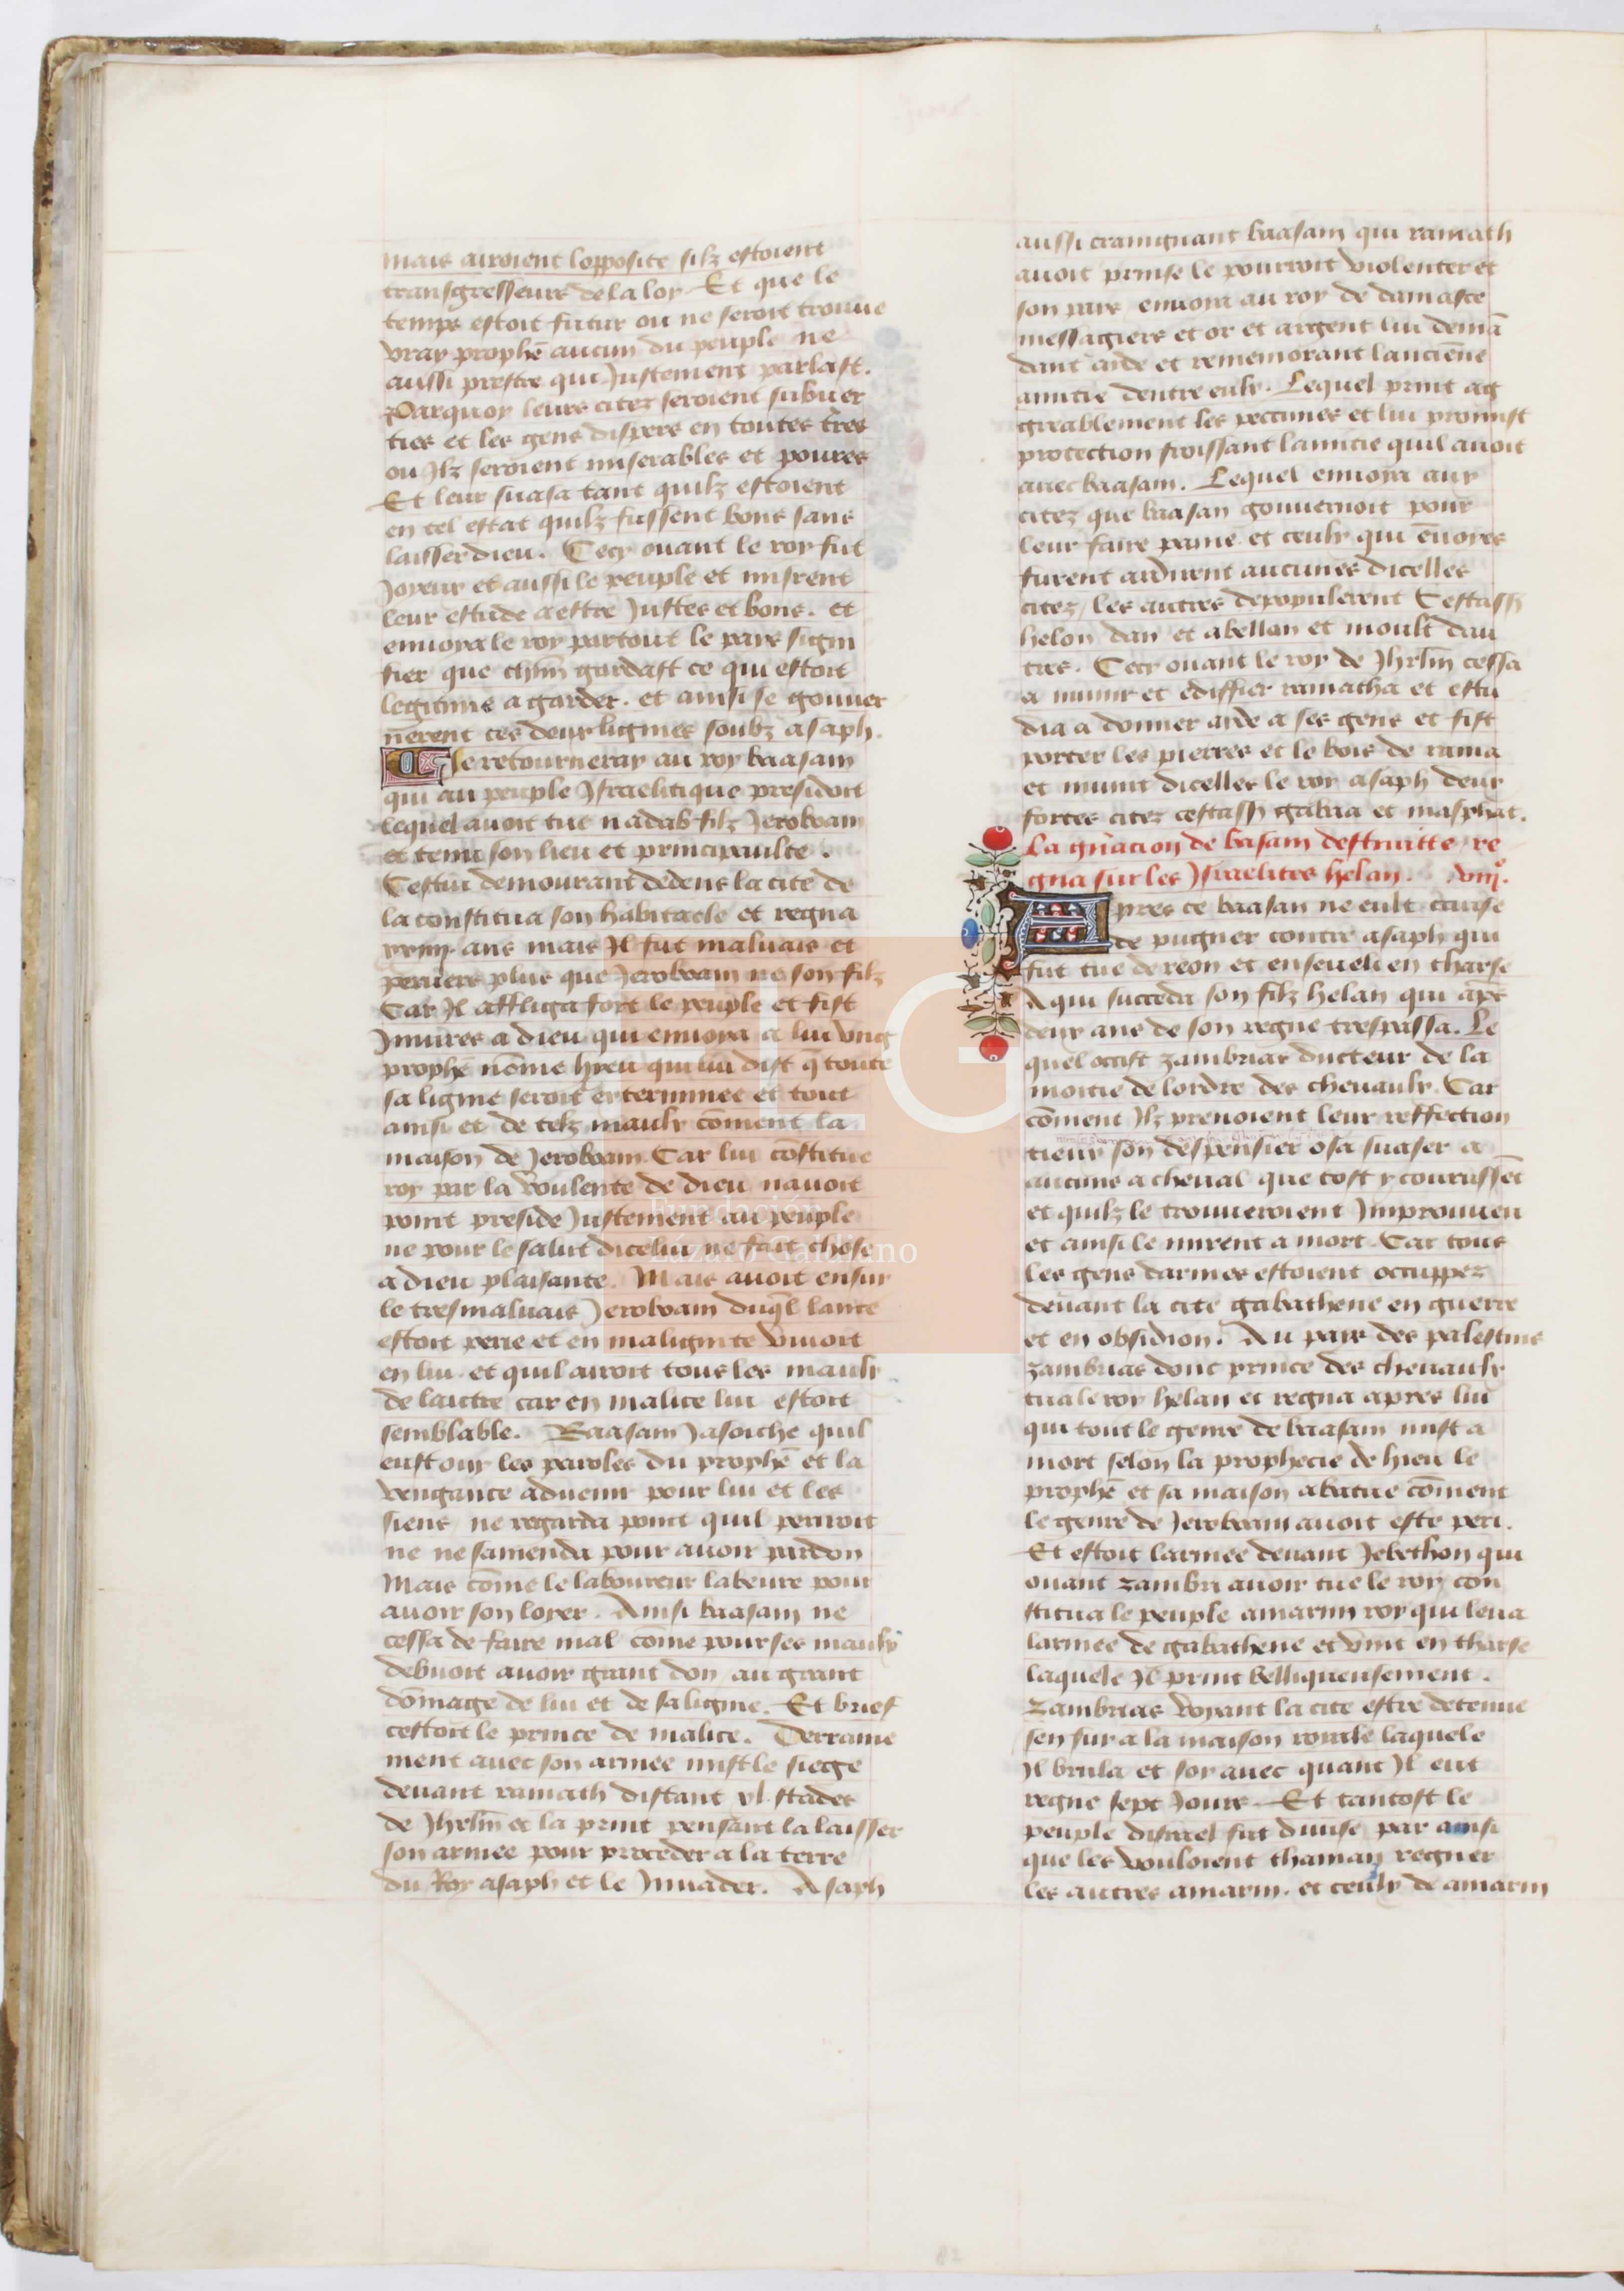 mais auroient lopposite silz estoient
transgresseurs de la loy. Et que le
temps estoit futur ou ne seroit trouue
vray prophẽ aucun du peuple ne
aussi prestre qui Justement parlast.
Parquoy leurs citez seroient subuer
ties et les gens dispers en toutes t̃res
ou Jlz seroient miserables et poures
Et leur suasa tant quilz estoient
en tel estat quilz fussent bons sans
laisser dieu. Cecy ouant le roy fut
Joyeux et aussi le peuple et misrent
leur estude a estre Justes et bons. et
enuoya le roy partout le pays signi
fier que chũn gardast ce qui estoit
legitime a garder. et ainsi se gouuer
nerent ces deux lignies soubz asaph.
Je retourneray au roy baasam
qui au peuple Jsraelitique presidoit
lequel auoit tue nadab filz Jeroboam
et tenu son lieu et principaulte.
Cestui demourant dedens la cite de
la constitua son habitacle et regna
xxiiij. ans mais Jl fut maluais et
peruers plus que Jeroboam ne son filz
Car Jl affliga fort le peuple et fist
Jniures a dieu qui enuoya a lui vng
prophẽ nõme hyeu qui lui dist q̃ toute
sa lignie seroit exterminee et tout
ainsi et de telz maulx cõment la
maison de Jeroboam. Car lui cõstitue
roy par la voulente de dieu nauoit
point preside Justement au peuple
ne pour le salut dicelui ne fait chose
a dieu plaisante. Mais auoit ensuy
le tresmaluais Jeroboam duq̃l lame
estoit perie et en malignite viuoit
en lui. et quil auroit tous les maulx
de lautre car en malice lui estoit
semblable. Baasam Jasoiche quil
eust ouy les paroles du prophẽ et la
vengance aduenir pour lui et les
siens ne regarda point quil periroit
ne ne samenda pour auoir pardon
Mais cõme le laboureur labeure pour
auoir son loyer. Ainsi baasam ne
cessa de faire mal cõme pour ses maulx
debuoit auoir grant don au grant
dõmage de lui et de sa lignie. Et brief
cestoit le prince de malice. Derraine
ment auec son armee mist le siege
deuant ramath distant xl. stades
de Jhrlm̃ et la print pensant la laisser
son armee pour proceder a la terre
du Roy asaph et le Jnuader. Asaph
aussi craingnant baasam qui ramath
auoit prinse le pourroit violenter et
son pays enuoya au roy de damasce
messagiers et or et argent lui demã
dant aide et rememorant lanciẽne
amitie dentre eulx. Lequel print ag
greablement les peccunes et lui promist
protection froissant lamitie quil auoit
auec baasam. Lequel enuoya aux
citez que baasan gouuernoit pour
leur faire paine et ceulx qui ẽuoyes
furent ardirent aucunes dicelles
citez, les autres depopulerent Cestassr̃
helon dan et abellan et moult dau
tres. Cecy ouant le roy de Jhrlm̃ cessa
a munir et ediffier ramatha et estu
dia a donner aide a ses gens et fist
porter les pierres et le bois de rama
et munit dicelles le roy asaph deux
fortes citez cestassr̃ gabaa et masphat.
La gñacion de basam destruitte re
gna sur les Jsraelites helan. viijͦ.
Apres ce baasan ne eult cause
de pugner contre asaph qui
fut tue de reon et enseueli en tharse
A qui succeda son filz helan qui apẽs
deux ans de son regne trespassa. Le
quel occist zambrias ducteur de la
moitie de lordre des cheuaulx. Car
cõment Jlz prenoient leur reffection
tieux son despensier osa suaser a
aucuns a cheual que tost y courussẽt
et quilz le trouueroient Jmprouueu
et ainsi le mirent a mort. Car tous
les gens darmes estoient occuppez
deuant la cite gabathene en guerre
et en obsidion. Au pays des palestins
zambrias dont prince des cheuaulx
tua le roy helan et regna apres lui
qui tout le genre de baasam mist a
mort selon la prophecie de hieu le
prophẽ et sa maison abatue cõment
le genre de Jeroboam auoit este peri.
Et estoit larmee deuant Jebethon qui
ouant zambri auoir tue le roy con
stitua le peuple amarim roy qui leua
larmee de gabathene et vint en tharse
laquele Jl print belliqueusement.
Zambrias voyant la cite estre detenue
sen fuya la maison royale laquele
Jl brula et soy auec quant Jl eut
regne sept Jours. Et tantost le
peuple disrael fut diuise par ainsi
que les vouloient thaman regner
les autres amarin. et ceulx de amarin
Fundación
Lázaro Galdiano
82